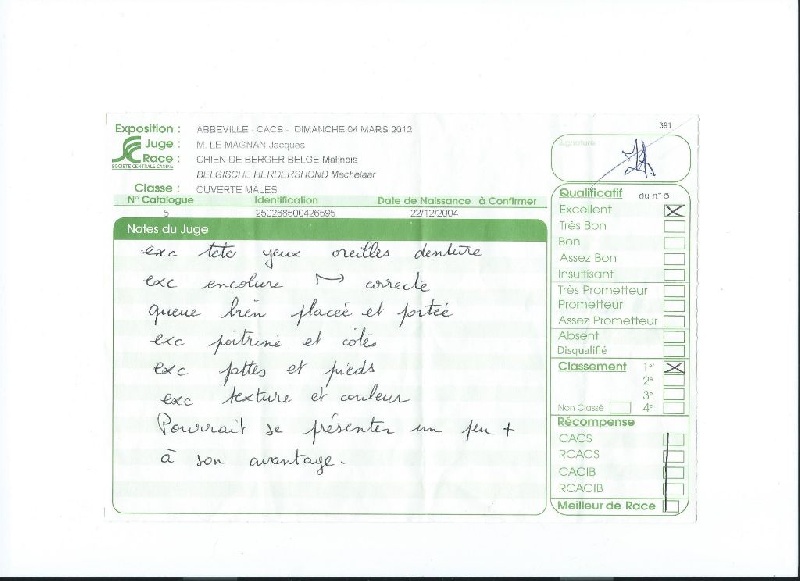 381
Exposition : ABBEVILLE - CACS - DIMANCHE 04 MARS 2012
Juge : M. LE MAGNAN Jacques
Race : CHIEN DE BERGER BELGE Malinois
SOCIETE CENTRALE CANINE
BELGISCHE HERDERSHOND Mechelaer
Classe : OUVERTE MALES
N° Catalogue Identification Date de Naissance à Confirmer
5 22/12/2004
Notes du Juge
exc tete yeux oreilles denture
exc encolure correcte
queue bien placée et portée
exc poitrine et côtes
exc pattes et pieds
exc texture et couleur
Pourrait se présenter un peu +
à son avantage.
Signature
Qualificatif du n° 5
Excellent X
Très Bon
Bon
Assez Bon
Insuffisant
Très Prometteur
Prometteur
Assez Prometteur
Absent
Disqualifié
Classement 1er X
2e
3e
Non Classé 4e
Récompense
CACS
RCACS
CACIB
RCACIB
Meilleur de Race